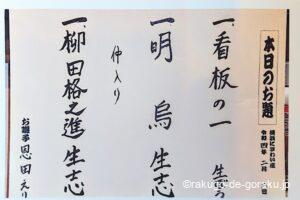 本日のお題
横浜にぎわい座
令和四年 二月
一、看板の一 生
一、明烏 生志
仲入り
一、柳田格之進 生志
お囃子 恩田えり
©rakugo-de-gorsku.jp